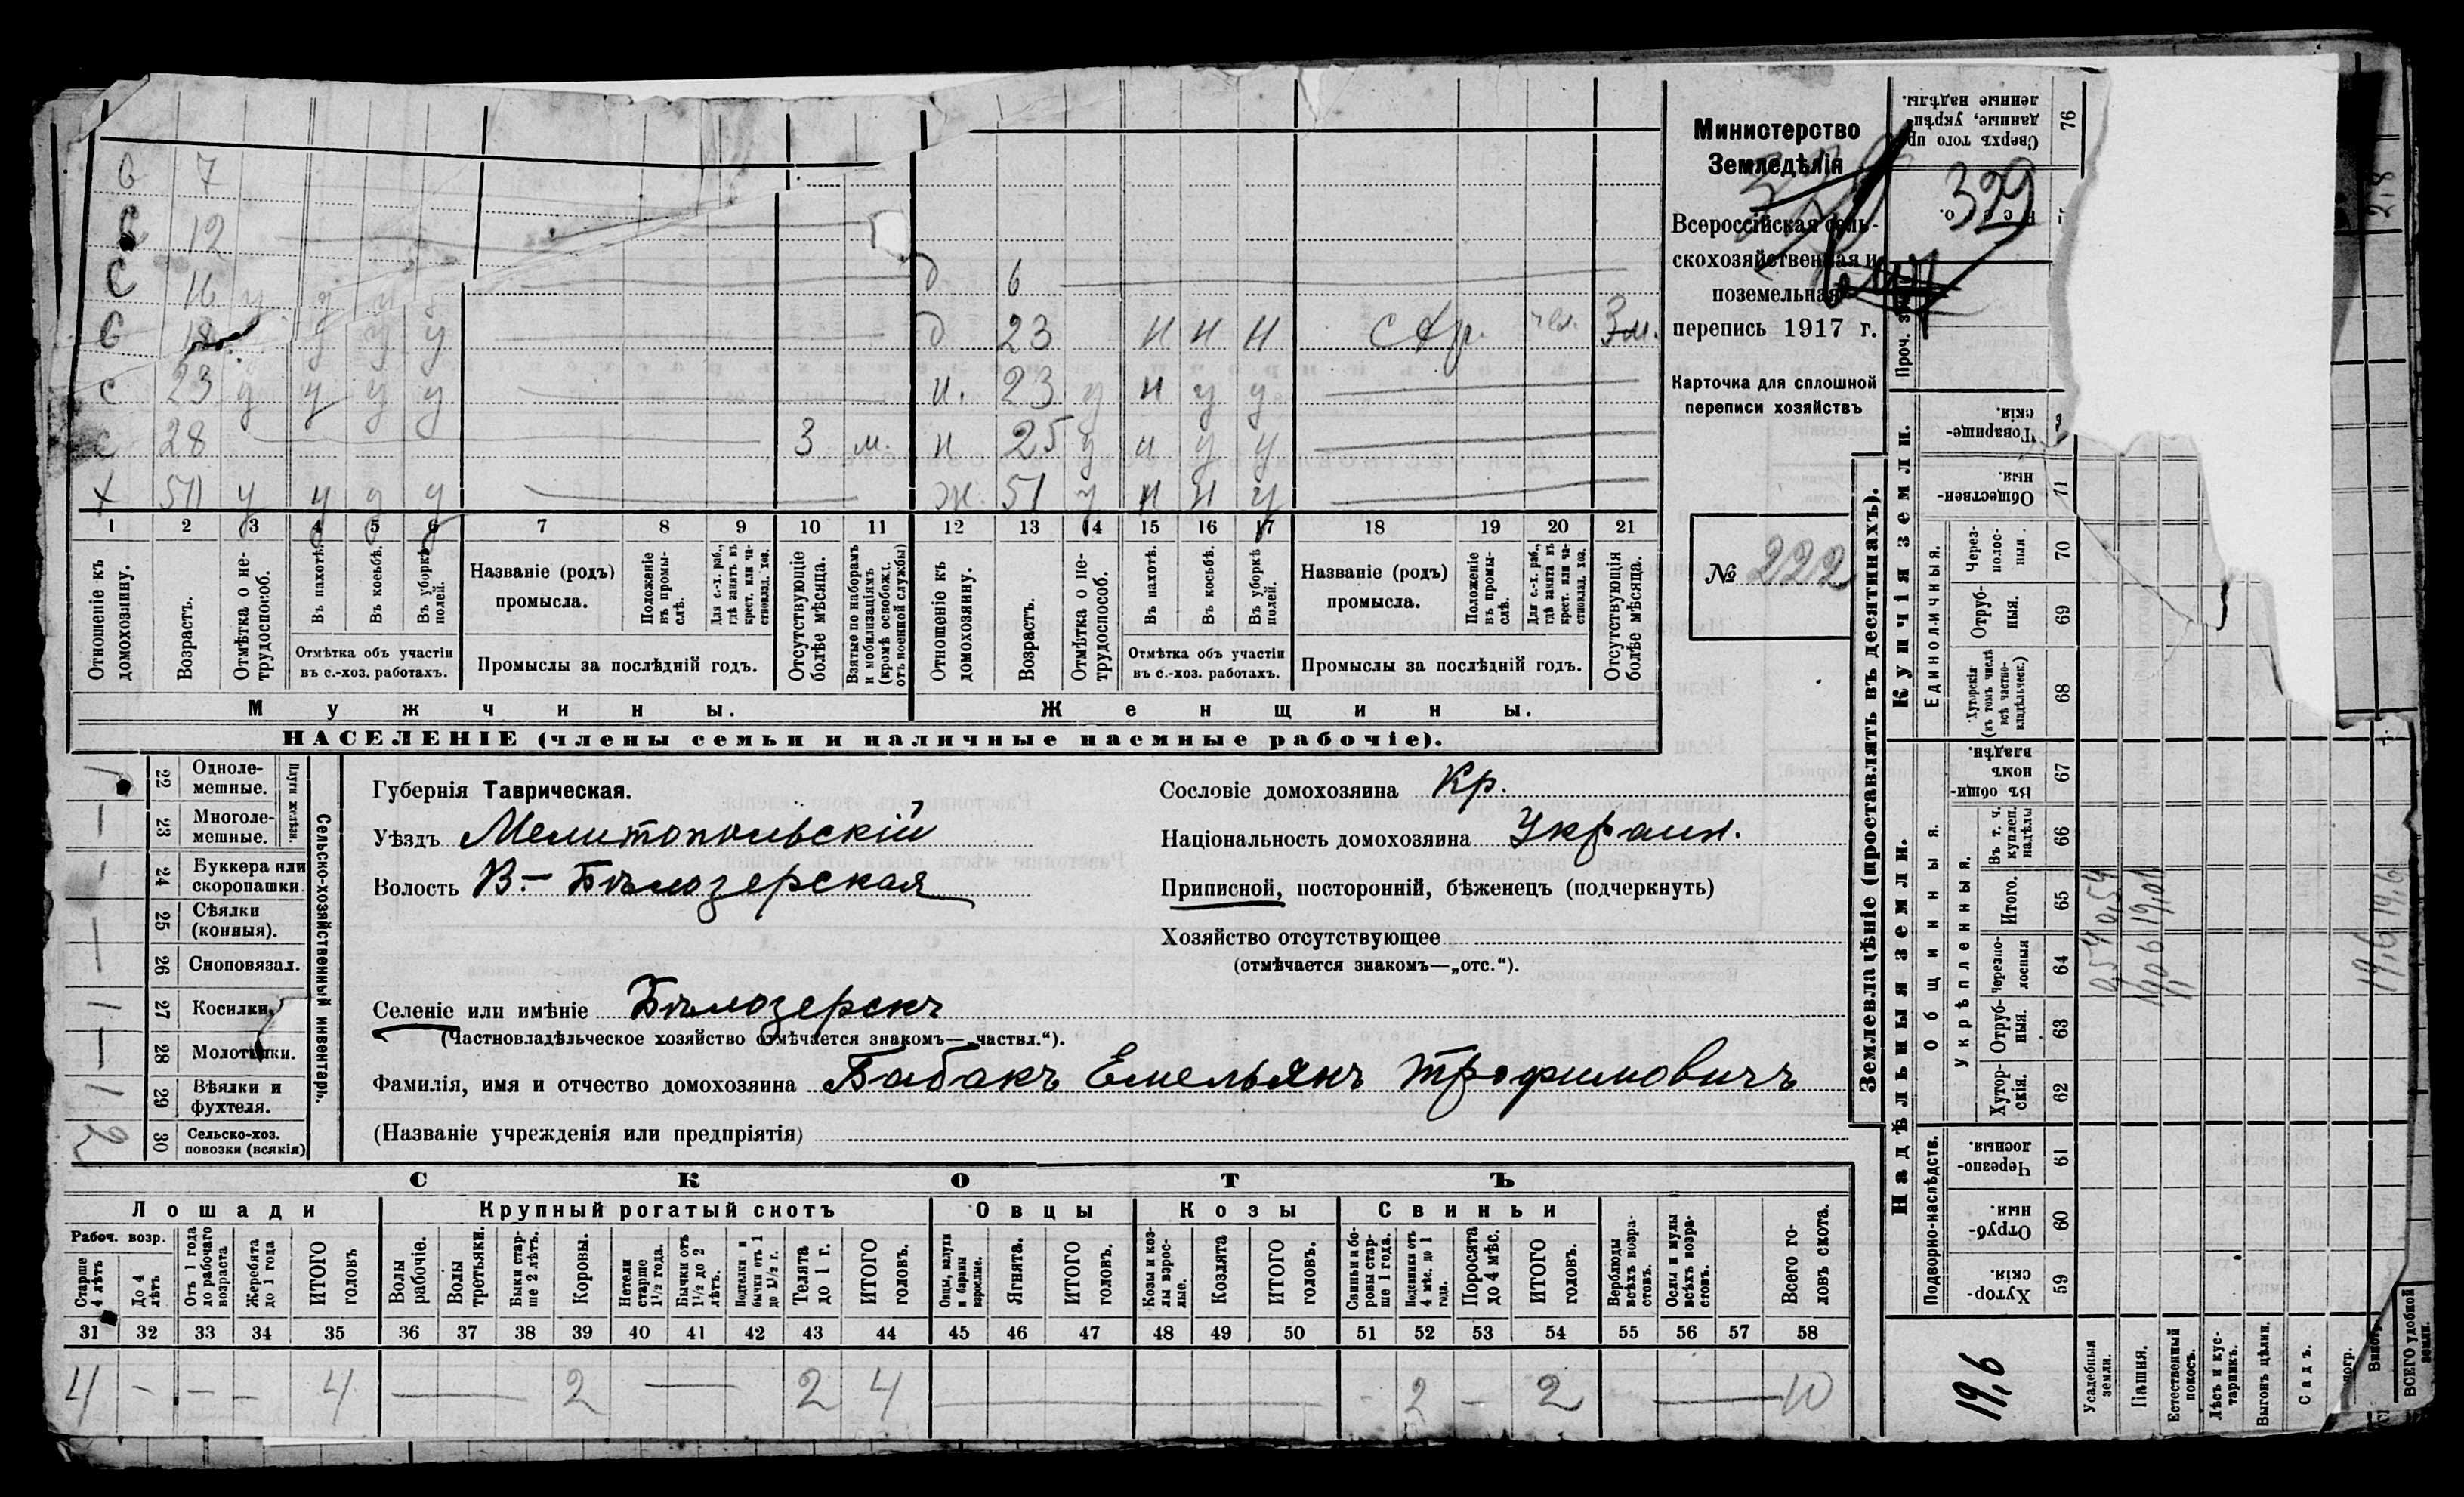 Министерство
Земледѣлія
Всероссійская сель-
скохозяйственная и
поземельная
перепись 1917 г.
Карточка для сплошной
переписи хозяйствъ
№ 222
329
с 7
с 12
с 16 у у у у
с у у у
с 23 у у у у
с 28 3 м.
х 50 у у у у
д 6
д 23 н н н 3 м.
н. 23 у н у у
н 25 у н у у
ж. 51 у н н у
1 2 3 4 5 6 7 8 9 10 11 12 13 14 15 16 17 18 19 20 21
Отношеніе къ домохозяину.
Возрастъ.
Отмѣтка о не-трудоспособ.
Въ пахотѣ.
Въ косьбѣ.
Въ уборкѣ полей.
Отмѣтка объ участіи
въ с.-хоз. работахъ.
Названіе (родъ)
промысла.
Положеніе въ промы-слѣ.
Для с.-х. раб., гдѣ занятъ въ крест. или ча-стновлад. хоз.
Промыслы за послѣдній годъ.
Отсутствующіе болѣе мѣсяца.
Взятые по наборамъ и мобилизаціямъ (кромѣ освобожд. отъ военной службы)
Отношеніе къ домохозяину.
Возрастъ.
Отмѣтка о не-трудоспособ.
Въ пахотѣ.
Въ косьбѣ.
Въ уборкѣ полей.
Отмѣтка объ участіи
въ с.-хоз. работахъ.
Названіе (родъ)
промысла.
Положеніе въ промы-слѣ.
Для с.-х. раб., гдѣ занята въ крест. или ча-стновлад. хоз.
Промыслы за послѣдній годъ.
Отсутствующія болѣе мѣсяца.
Мужчины.
Женщины.
НАСЕЛЕНІЕ (члены семьи и наличные наемные рабочіе).
Сельско-хозяйственный инвентарь.
Плуги желѣзн.
22 Одноле-мешные.
23 Многоле-мешные.
24 Буккера или скоропашки
25 Сѣялки (конныя).
26 Сноповязал.
27 Косилки.
28 Молотилки.
29 Вѣялки и фухтеля.
30 Сельско-хоз. повозки (всякія) 2
Губернія Таврическая.
Уѣздъ Мелитопольскій
Волость В.- Бѣлозерская
Селеніе или имѣніе Бѣлозерскъ
(Частновладѣльческое хозяйство отмѣчается знакомъ—„частвл.“).
Фамилія, имя и отчество домохозяина Бабакъ Емельянъ Трофимовичъ
(Названіе учрежденія или предпріятія)
Сословіе домохозяина Кр.
Національность домохозяина Украин.
Приписной, посторонній, бѣженецъ (подчеркнуть)
Хозяйство отсутствующее
(отмѣчается знакомъ—„отс.“).
СКОТЪ
Лошади
Крупный рогатый скотъ
Овцы
Козы
Свиньи
Рабоч. возр.
Старше 4 лѣтъ
До 4 лѣтъ
Отъ 1 года до рабочаго возраста
Жеребята до 1 года
ИТОГО головъ
Волы рабочіе.
Волы третьяки.
Быки стар-ше 2 лѣтъ.
Коровы.
Нетели старше 1½ года.
Бычки отъ 1½ до 2 лѣтъ.
Подтелки и бычки отъ 1 до 1½ г.
Телята до 1 г.
ИТОГО головъ.
Овцы, валухи и бараны взрослые.
Ягнята.
ИТОГО головъ.
Козы и коз-лы взрос-лые.
Козлята
ИТОГО головъ.
Свиньи и бо-ровы стар-ше 1 года.
Подсвинки отъ 4 мѣс. до 1 года.
Поросята до 4 мѣс.
ИТОГО головъ.
Верблюды всѣхъ возра-стовъ.
Ослы и мулы всѣхъ возра-стовъ.
Всего го-ловъ скота.
31 32 33 34 35 36 37 38 39 40 41 42 43 44 45 46 47 48 49 50 51 52 53 54 55 56 57 58
4 - - - 4 — 2 — 2 4 — - 2 - 2 — 10
Землевладѣніе (проставлять въ десятинахъ).
Надѣльныя земли.
Купчія земли.
Проч.
Подворно-наслѣдств.
Общинныя.
Укрѣпленныя.
Единоличныя.
59 Хутор-скія.
60 Отруб-ныя.
61 Черезпо-лосныя
62 Хутор-скія.
63 Отруб-ныя.
64 Черезпо-лосныя
65 Итого.
66 Въ т. ч. куплен. надѣлы
67 Въ общи-номъ владѣн.
68 Хуторскія (въ томъ числѣ всѣ частно-владѣльческ.)
69 Отруб-ныя.
70 Через-полос-ныя.
71 Обществен-ныя.
Товарище-скія.
76 Сверхъ того про-данные, укрѣп-ленные надѣлы.
19,6
Усадебныя земли. 0,54 0,54
Пашня.
Естественный покосъ.
Лѣсъ и кус-тарникъ.
Выгонъ цѣлин.
Садъ.
ВСЕГО удобной земли.
19,6 19,6